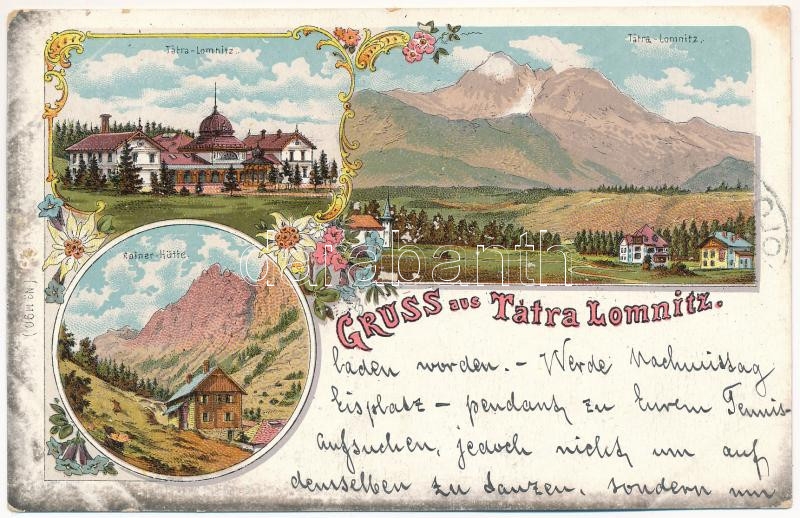 Tátra-Lomnitz.
Tátra-Lomnitz.
Rainer-Hütte.
darabanth
GRUSS aus Tátra Lomnitz.
laden worden. – Werde Nachmittag
Eisplatz – pendant zu Eurem Tennis-
aufsuchen, jedoch nicht um auf
demselben zu tanzen, sondern um